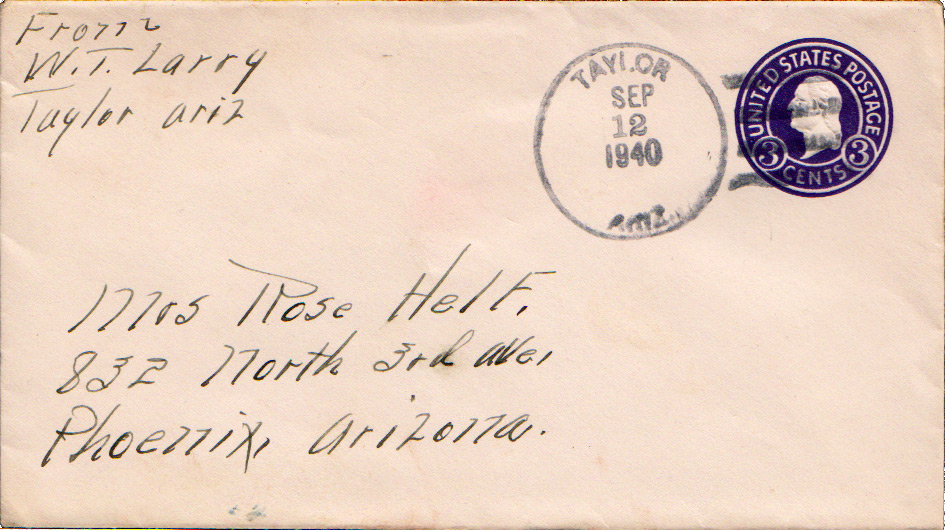 From
W.T. Larry
Taylor ariz
TAYLOR
SEP
12
1940
ARIZ.
UNITED STATES POSTAGE
3 CENTS 3
Mrs Rose Helf.
832 North 3rd ave,
Phoenix, arizona.